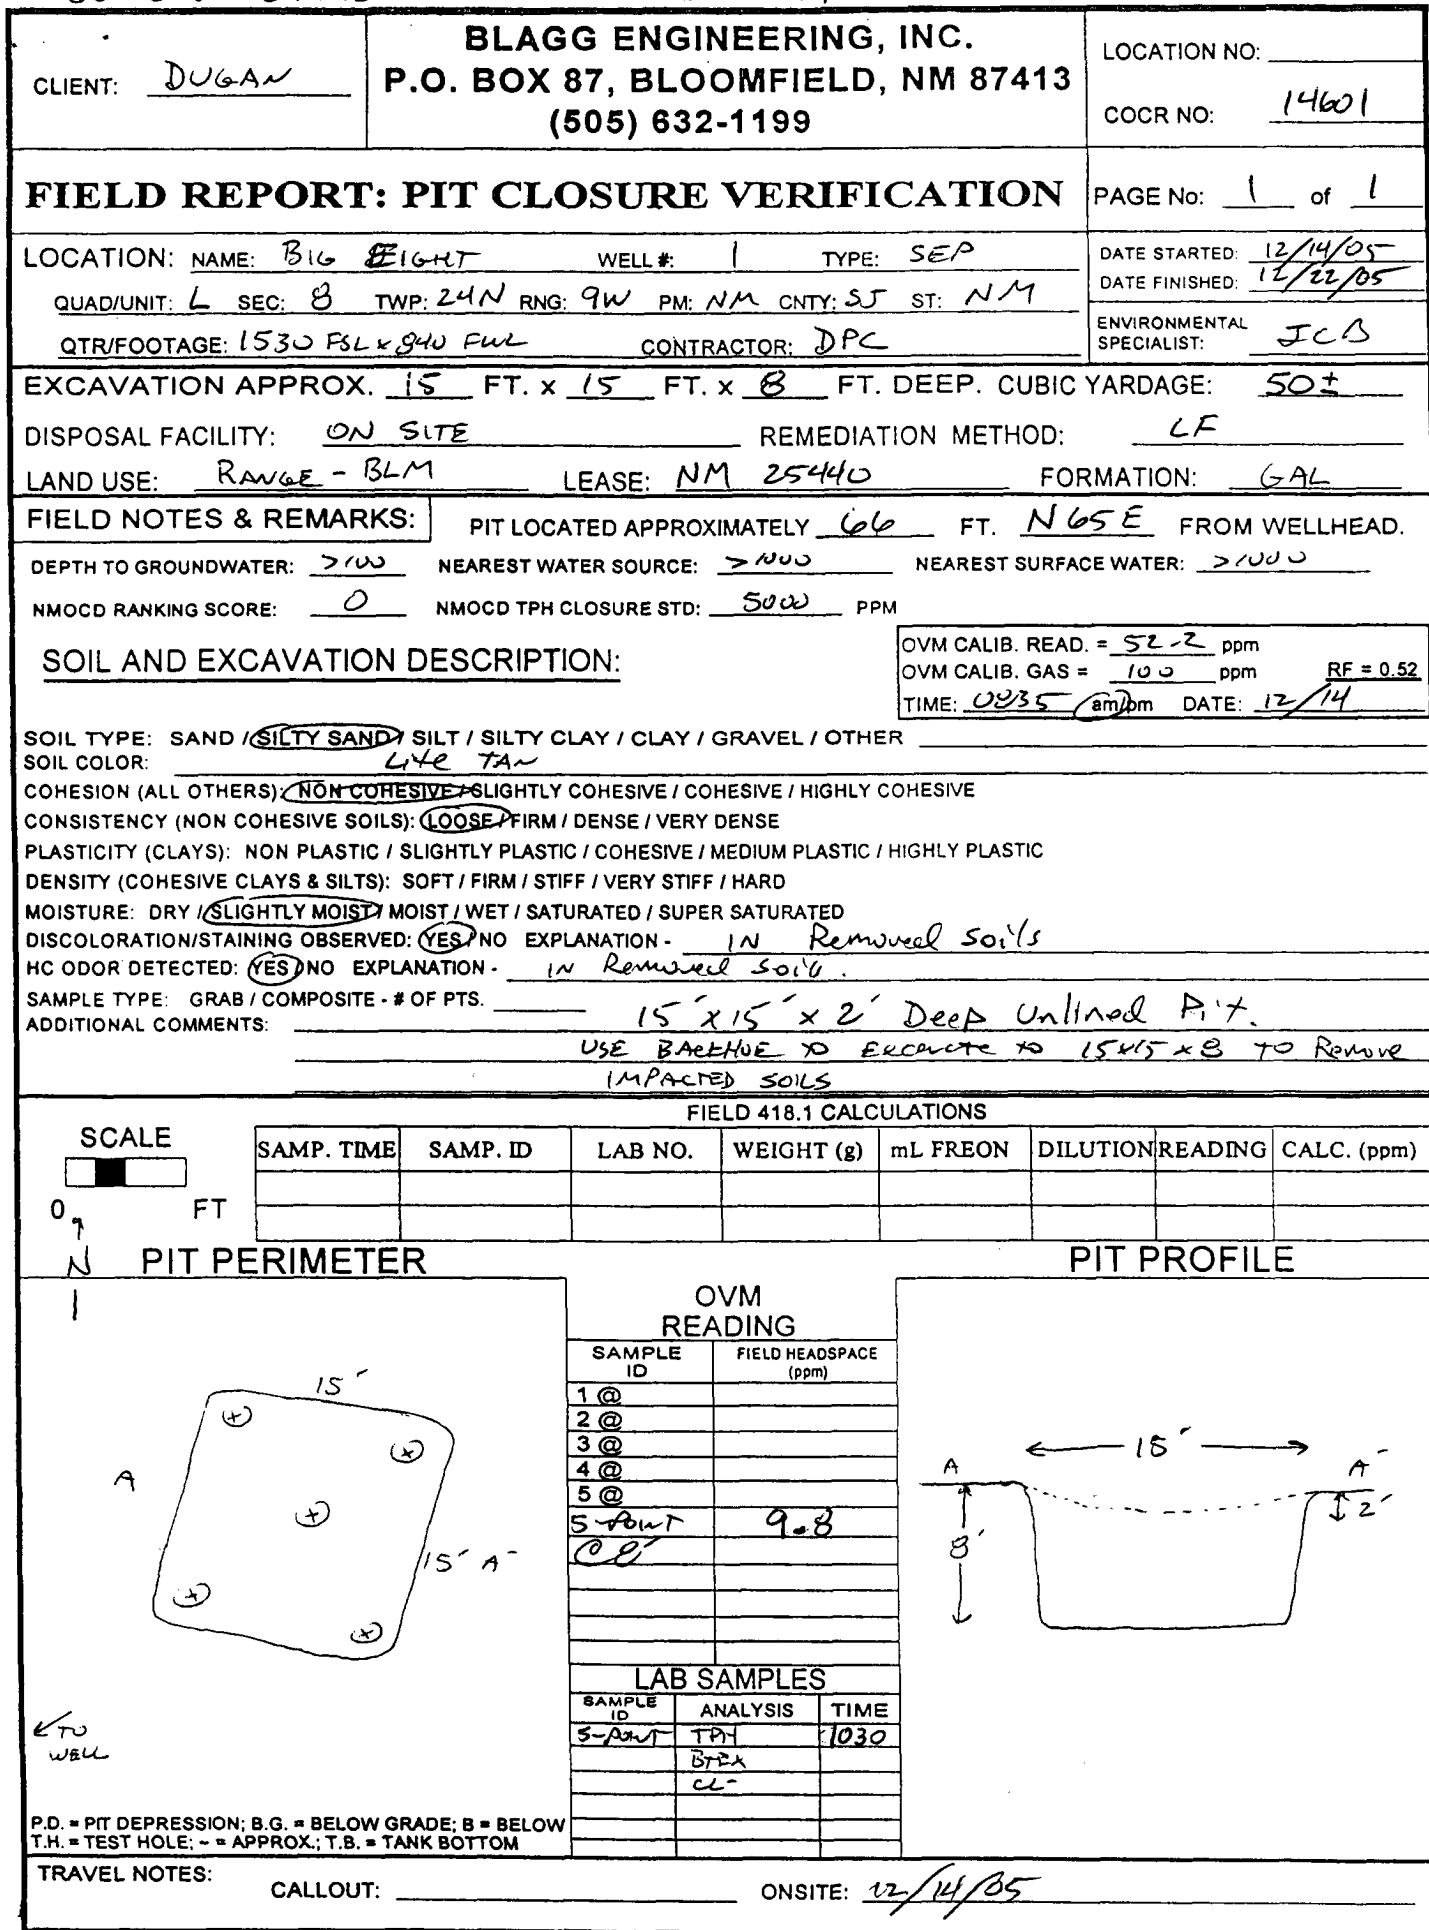 BLAGG ENGINEERING, INC.
P.O. BOX 87, BLOOMFIELD, NM 87413
(505) 632-1199
CLIENT: DUGAN
LOCATION NO:
COCR NO: 14601
FIELD REPORT: PIT CLOSURE VERIFICATION
PAGE No: 1 of 1
LOCATION: NAME: BIG EIGHT WELL #: 1 TYPE: SEP
DATE STARTED: 12/14/05
DATE FINISHED: 12/22/05
QUAD/UNIT: L SEC: 8 TWP: 24N RNG: 9W PM: NM CNTY: SJ ST: NM
QTR/FOOTAGE: 1530 FSL x 840 FWL CONTRACTOR: DPC
ENVIRONMENTAL
SPECIALIST: JCB
EXCAVATION APPROX. 15 FT. x 15 FT. x 8 FT. DEEP. CUBIC YARDAGE: 50±
DISPOSAL FACILITY: ON SITE REMEDIATION METHOD: LF
LAND USE: RANGE - BLM LEASE: NM 25440 FORMATION: GAL
FIELD NOTES & REMARKS: PIT LOCATED APPROXIMATELY 66 FT. N65E FROM WELLHEAD.
DEPTH TO GROUNDWATER: >100 NEAREST WATER SOURCE: >1000 NEAREST SURFACE WATER: >1000
NMOCD RANKING SCORE: 0 NMOCD TPH CLOSURE STD: 5000 PPM
SOIL AND EXCAVATION DESCRIPTION:
OVM CALIB. READ. = 52.2 ppm
OVM CALIB. GAS = 100 ppm RF = 0.52
TIME: 0835 am/pm DATE: 12/14
SOIL TYPE: SAND / SILTY SAND / SILT / SILTY CLAY / CLAY / GRAVEL / OTHER
SOIL COLOR: Lite TAN
COHESION (ALL OTHERS): NON COHESIVE / SLIGHTLY COHESIVE / COHESIVE / HIGHLY COHESIVE
CONSISTENCY (NON COHESIVE SOILS): LOOSE / FIRM / DENSE / VERY DENSE
PLASTICITY (CLAYS): NON PLASTIC / SLIGHTLY PLASTIC / COHESIVE / MEDIUM PLASTIC / HIGHLY PLASTIC
DENSITY (COHESIVE CLAYS & SILTS): SOFT / FIRM / STIFF / VERY STIFF / HARD
MOISTURE: DRY / SLIGHTLY MOIST / MOIST / WET / SATURATED / SUPER SATURATED
DISCOLORATION/STAINING OBSERVED: YES / NO EXPLANATION - IN Removed Soils
HC ODOR DETECTED: YES / NO EXPLANATION - IN Removed Soils.
SAMPLE TYPE: GRAB / COMPOSITE - # OF PTS.
ADDITIONAL COMMENTS: 15' x 15' x 2' Deep Unlined Pit.
USE BACKHOE TO Excavate to 15x15x8 TO Remove
IMPACTED SOILS
FIELD 418.1 CALCULATIONS
SCALE
0 FT
SAMP. TIME SAMP. ID LAB NO. WEIGHT (g) mL FREON DILUTION READING CALC. (ppm)
N
PIT PERIMETER
PIT PROFILE
OVM
READING
SAMPLE ID FIELD HEADSPACE (ppm)
1 @
2 @
3 @
4 @
5 @
5-POINT 9.8
@ 8'
15'
A
15' A'
TO
WELL
15'
A
A'
8'
2'
LAB SAMPLES
SAMPLE ID ANALYSIS TIME
5-point TPH 1030
BTEX
CL-
P.D. = PIT DEPRESSION; B.G. = BELOW GRADE; B = BELOW
T.H. = TEST HOLE; ~ = APPROX.; T.B. = TANK BOTTOM
TRAVEL NOTES:
CALLOUT: ONSITE: 12/14/05